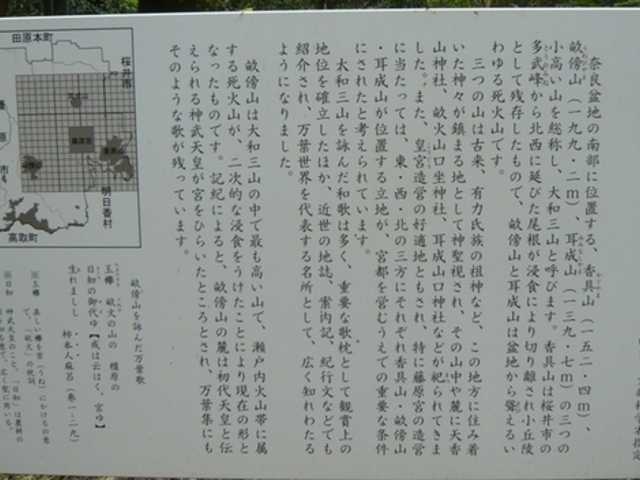 奈良盆地の南部に位置する、香具山(一五二・四m)、
畝傍山(一九九・二m)、耳成山(一三九・七m)の三つの
小高い山を総称し、大和三山と呼びます。香具山は桜井市の
多武峰から北西に延びた尾根が浸食により切り離され小丘陵
として残存したもので、畝傍山と耳成山は盆地から聳えるい
わゆる死火山です。
三つの山は古来、有力氏族の祖神など、この地方に住み着
いた神々が鎮まる地として神聖視され、その山中や麓に天香
山神社、畝火山口坐神社、耳成山口神社などが祀られてきま
した。また、皇宮造営の好適地ともされ、特に藤原宮の造営
に当たっては、東・西・北の三方にそれぞれ香具山・畝傍山
・耳成山が位置する立地が、宮都を営むうえでの重要な条件
にされたと考えられています。
大和三山を詠んだ和歌は多く、重要な歌枕として観賞上の
地位を確立したほか、近世の地誌、案内記、紀行文などでも
紹介され、万葉世界を代表する名所として、広く知れわたる
ようになりました。
畝傍山は大和三山の中で最も高い山で、瀬戸内火山帯に属
する死火山が、二次的な浸食をうけたことにより現在の形と
なったものです。記紀によると、畝傍山の麓は初代天皇と伝
えられる神武天皇が宮をひらいたところとされ、万葉集にも
そのような歌が残っています。
畝傍山を詠んだ万葉歌
玉襷 畝火の山の 橿原の
日知の御代ゆ【或は云はく、宮ゆ】
生れましし
柿本人麻呂(巻一・二九)
※玉襷 美しい襷を首(うね)にかけるの意
で、「畝火」の枕詞
※日知 神武天皇のこと。「日知」は農耕の
田原本町
桜井市
明日香村
高取町
橿
原
市